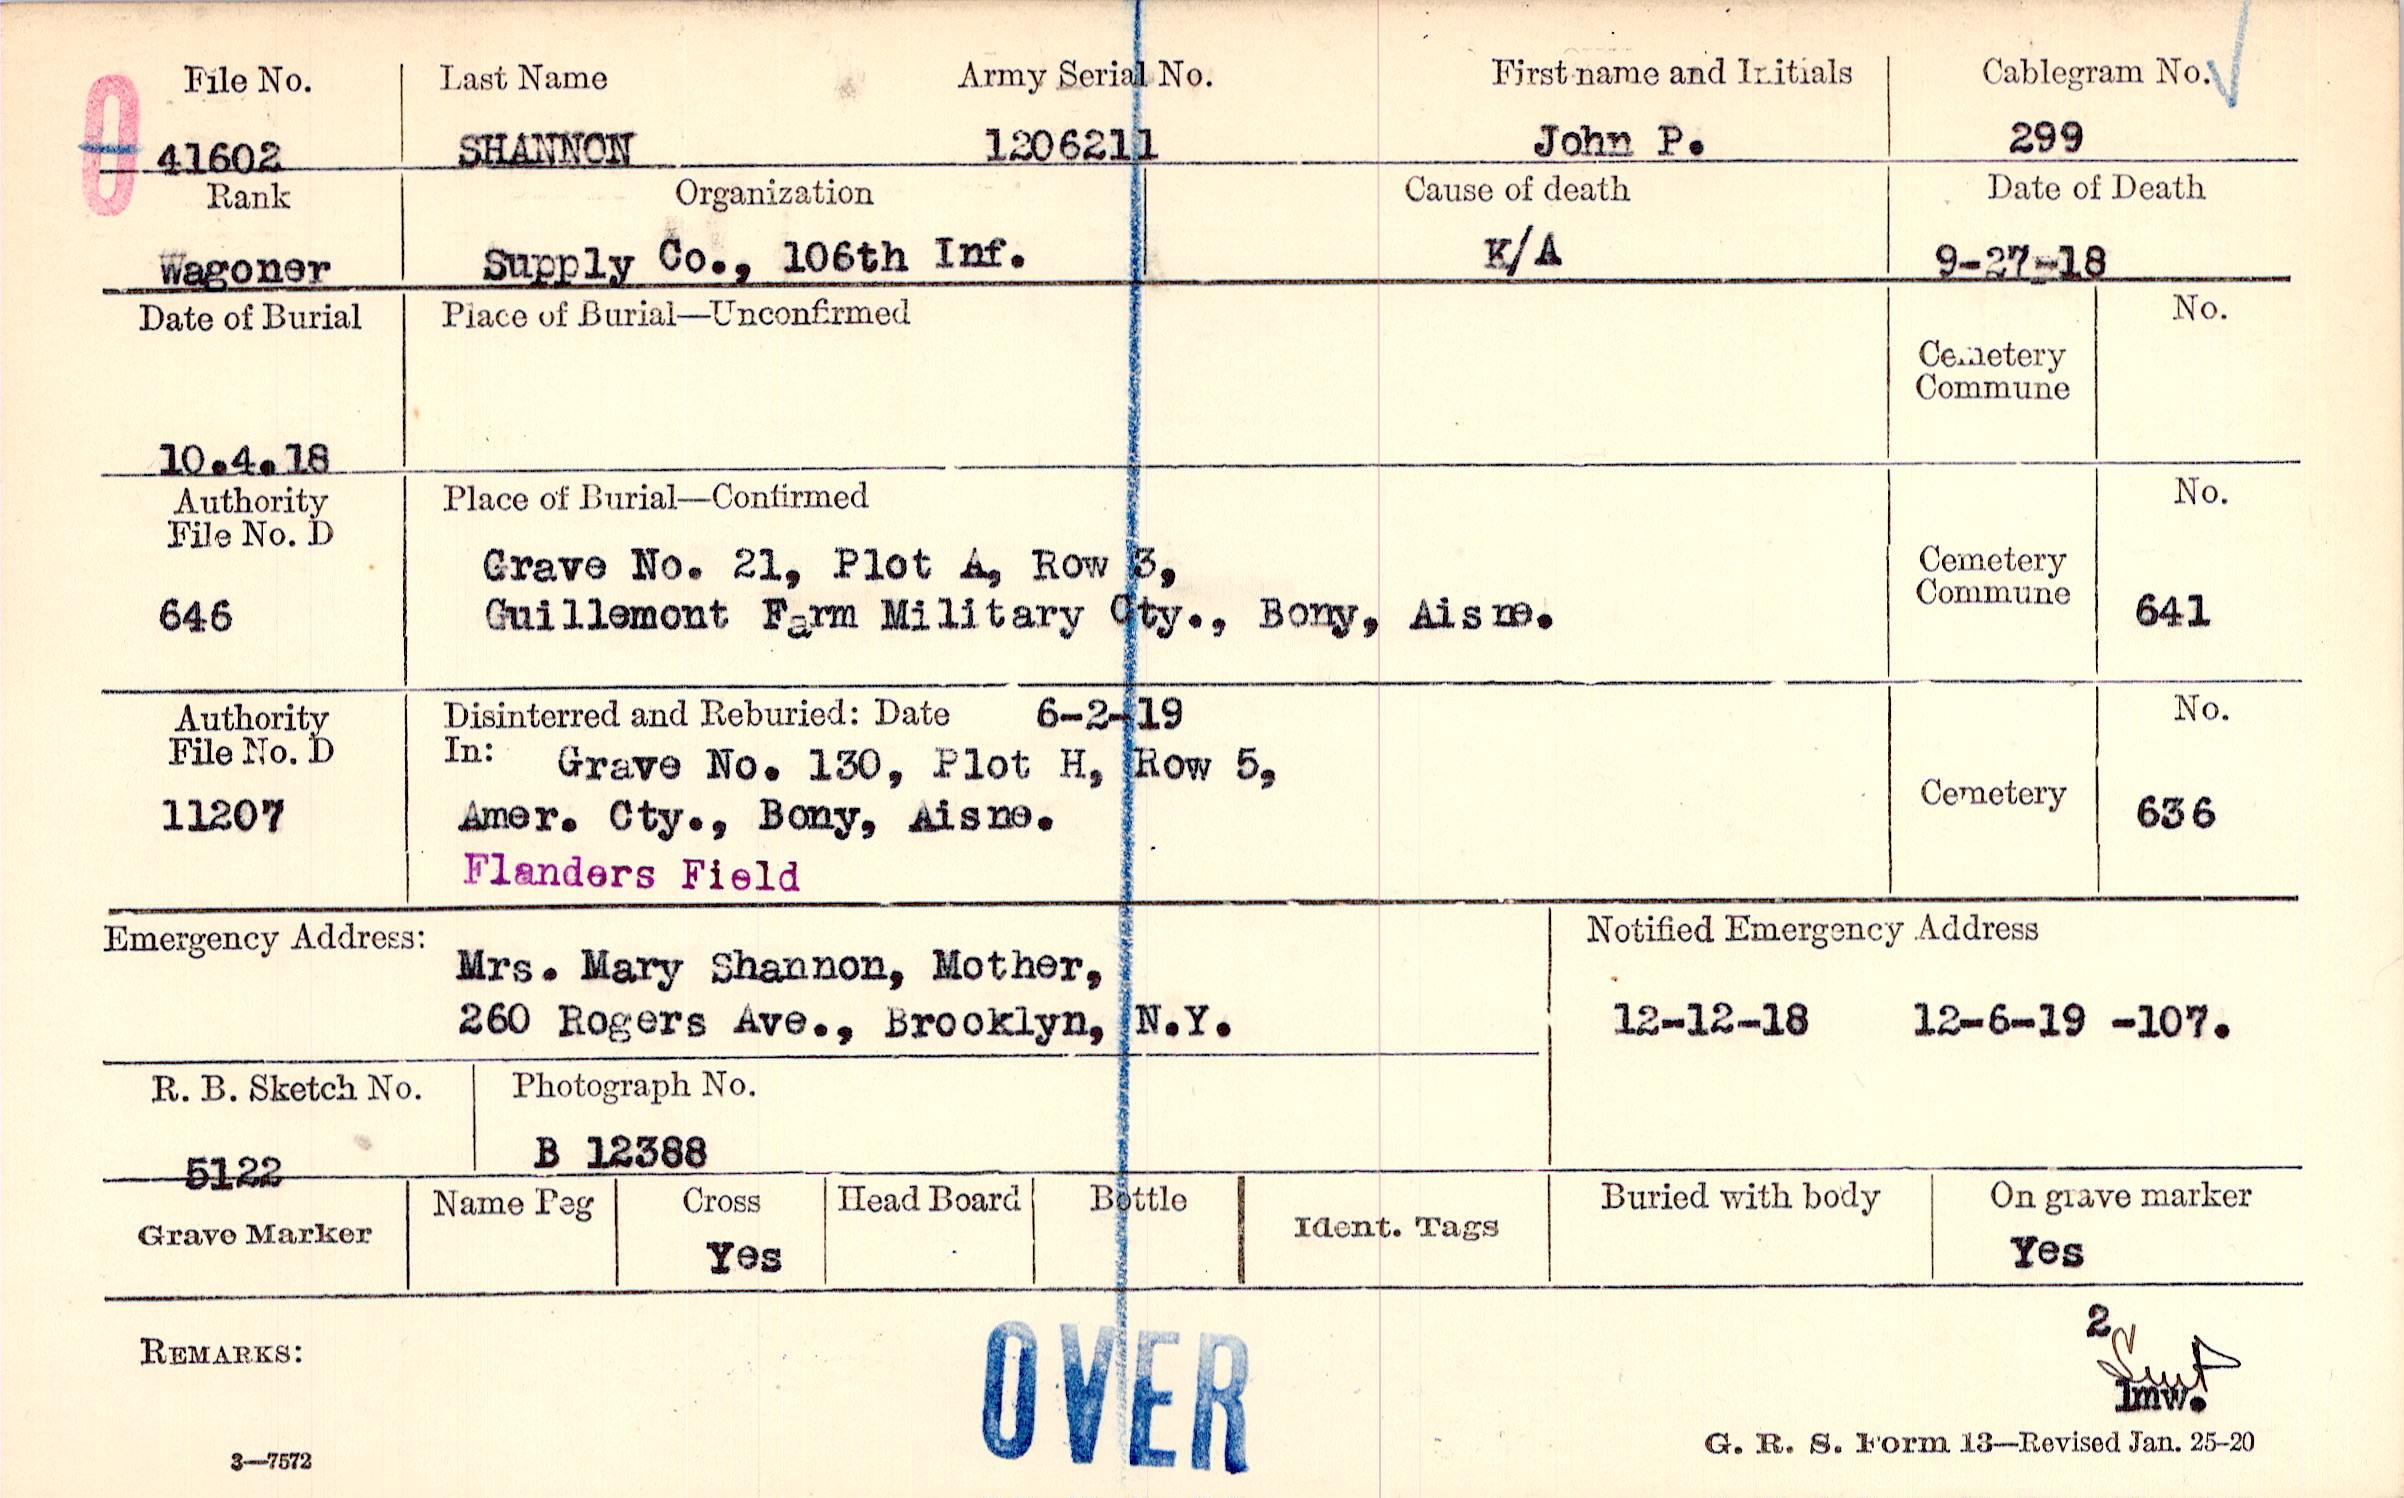 File No. Last Name Army Serial No. First name and Initials Cablegram No.
0
41602 SHANNON 1206211 John P. 299
Rank Organization Cause of death Date of Death
Wagoner Supply Co., 106th Inf. K/A 9-27-18
Date of Burial Place of Burial—Unconfirmed No.
Cemetery
Commune
10.4.18
Authority Place of Burial—Confirmed No.
File No. D
Grave No. 21, Plot A, Row 3, Cemetery
646 Guillemont Farm Military Cty., Bony, Aisne. Commune 641
Authority Disinterred and Reburied: Date 6-2-19 No.
File No. D In: Grave No. 130, Plot H, Row 5,
11207 Amer. Cty., Bony, Aisne. Cemetery 636
Flanders Field
Emergency Address: Notified Emergency Address
Mrs. Mary Shannon, Mother,
260 Rogers Ave., Brooklyn, N.Y. 12-12-18 12-6-19 -107.
R. B. Sketch No. Photograph No.
5122 B 12388
Grave Marker Name Peg Cross Head Board Bottle Ident. Tags Buried with body On grave marker
Yes Yes
2
REMARKS:
lmw.
OVER
3—7572 G. R. S. Form 13—Revised Jan. 25-20